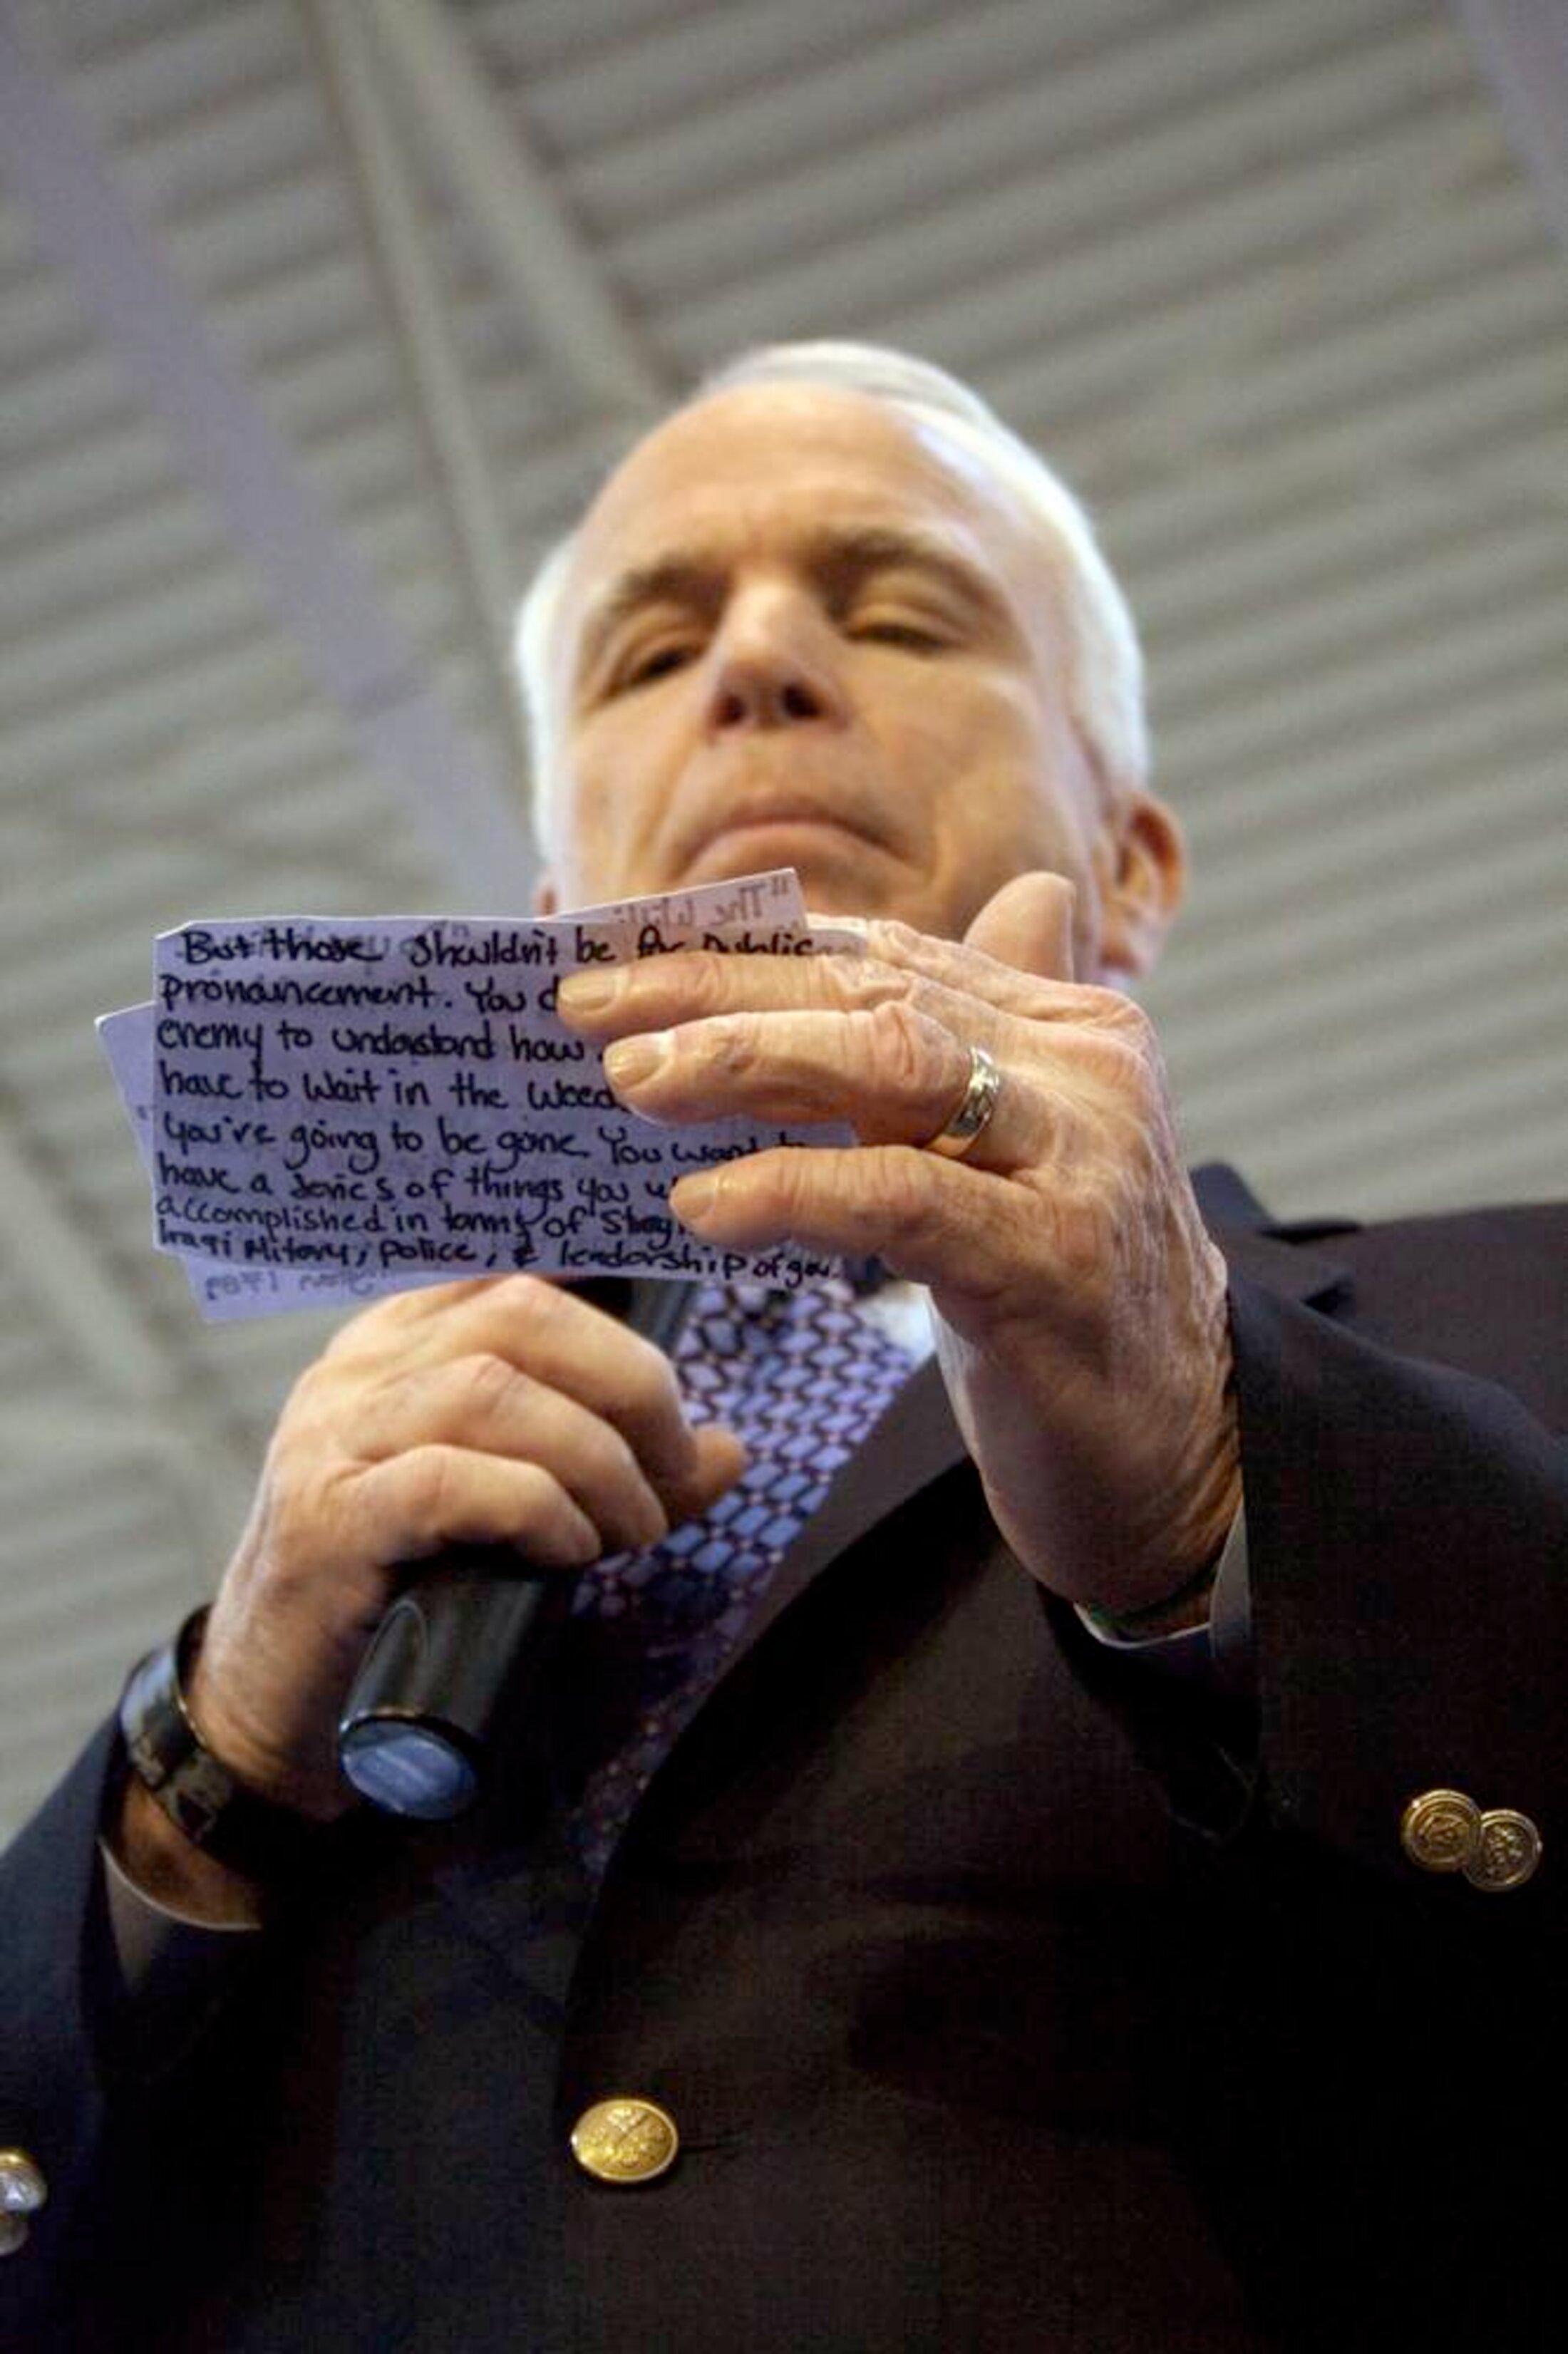 But those shouldn't be for public
pronouncement. You d
enemy to understand how
have to wait in the weed
you're going to be gone. You want to
have a series of things you w
accomplished in terms of Stre
Iraqi Military, police, & leadership of gov.
"The